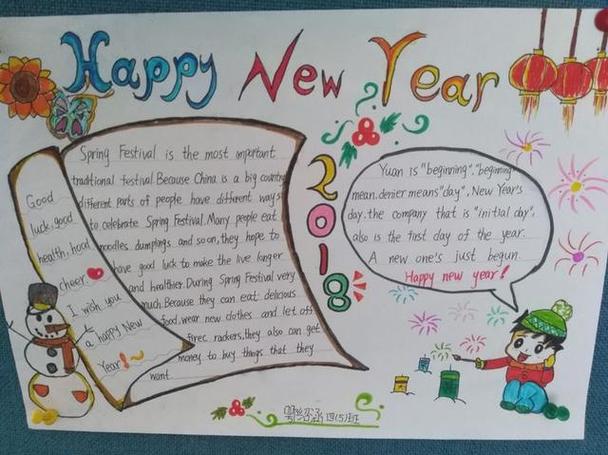 Happy New Year
Spring Festival is the most important
traditional festival. Because China is a big country
different parts of people have different ways
to celebrate Spring Festival. Many people eat
noodles. dumplings. and so on, they hope to
have good luck to make the live longer
and healthier. During Spring Festival very
much. Because they can eat delicious
food, wear new clothes and let off
firec rackers, they also can get
money to buy things that they
want
Good
luck, good
health, hood
cheer.
I wish you
a happy New
Year!~
2018
Yuan is "beginning". "beginning"
mean. denier means "day", New Year's
day. the company that is "initial day",
also is the first day of the year.
A new one's just begun
Happy new year!
四(5)班